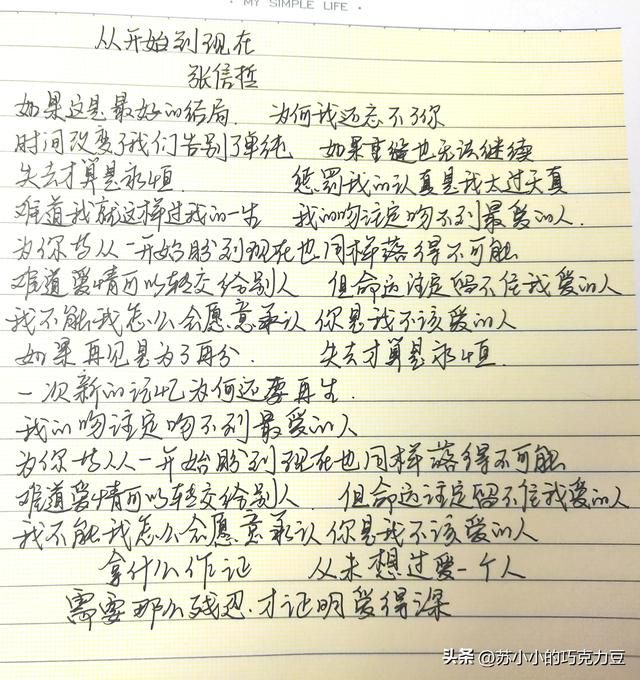 · MY SIMPLE LIFE ·
从开始到现在
张信哲
如果这是最好的结局. 为何我还忘不了你
时间改变了我们告别了单纯 如果重缝也无该继续
失去才算是永恒. 惩罚我的认真是我太过天真
难道我就这样过我的一生 我的吻注定吻不到最爱的人.
为你苦从一开始盼到现在也同样落得不可能
难道爱情可以转交给别人 但命运注定留不住我爱的人
我不能我怎么会愿意承认 你是我不该爱的人
如果再见是为了再分. 失去才算是永恒.
一次新的记忆为何还要再生.
我的吻注定吻不到最爱的人
为你苦从一开始盼到现在也同样落得不可能
难道爱情可以转交给别人. 但命运注定留不住我爱的人
我不能我怎么会愿意承认 你是我不该爱的人
拿什么作证 从未想过爱一个人
需要那么残忍.才证明爱得深
头条 @苏小小的巧克力豆